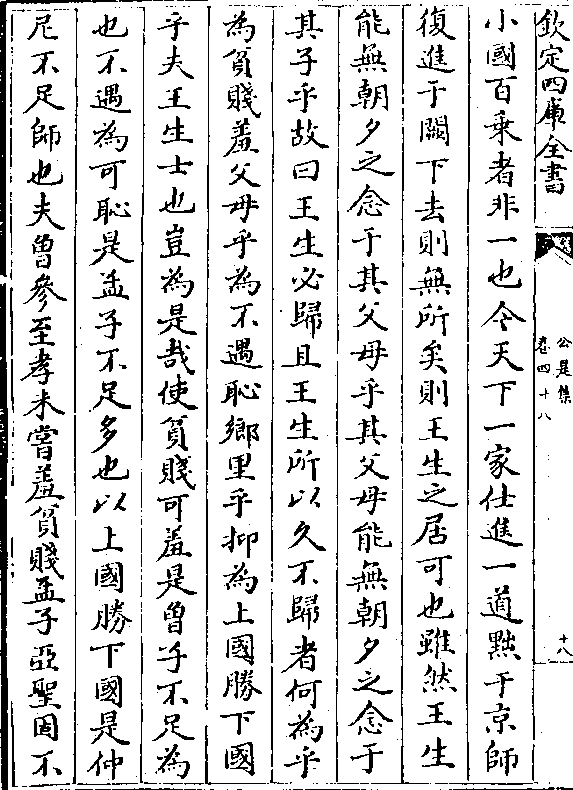 欽定四庫全書
公是集
卷四十八
十八
小國百乘者非一也令天下一家仕進一道黜于京師
復進于闕下去則無所矣則王生之居可也雖然王生
能無朝夕之念于其父母乎其父母能無朝夕之念于
其子乎故曰王生必歸且王生所以久不歸者何為乎
為貧賤羞父母乎為不遇恥鄉里乎抑為上國勝下國
乎夫王生士也豈為是哉使貧賤可羞是曾子不足為
也不遇為可恥是孟子不足多也以上國勝下國是仲
尼不足師也夫曾參至孝未嘗羞貧賤孟子亞聖固不